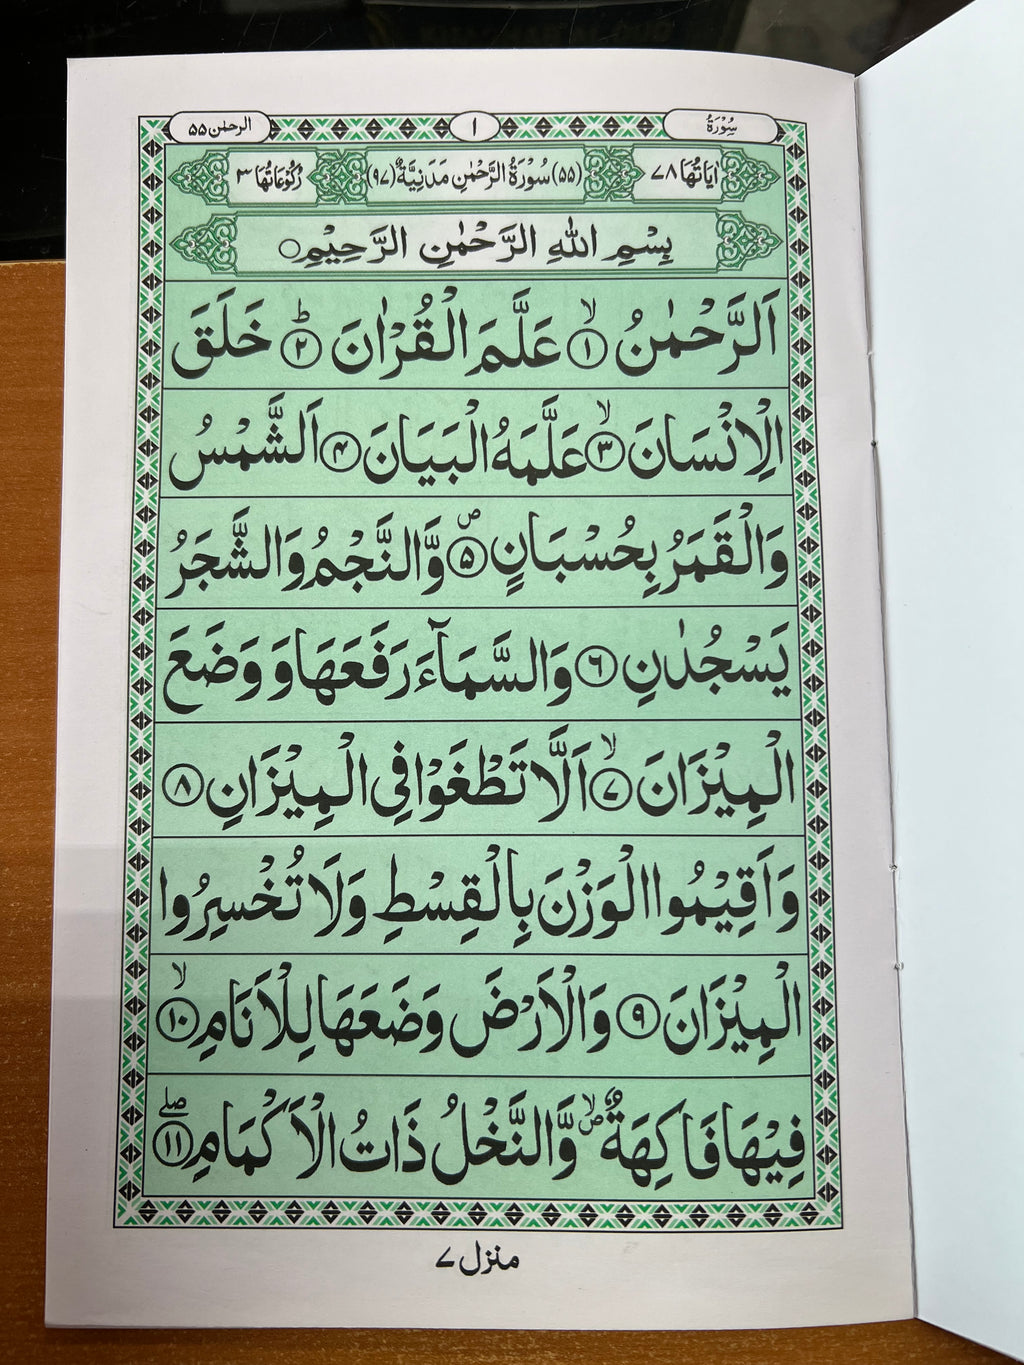 سُوْرَةُ
١
الرحمٰن ۵۵
اٰيَاتُهَا ٧٨
(۵۵) سُوْرَةُ الرَّحْمٰنِ مَدَنِيَّةٌ (٩٧)
رُكُوْعَاتُهَا ٣
بِسْمِ اللّٰهِ الرَّحْمٰنِ الرَّحِيْمِ ○
اَلرَّحْمٰنُ ۙ﴿۱﴾ عَلَّمَ الْقُرْاٰنَ ؕ﴿۲﴾ خَلَقَ
الْاِنْسَانَ ۙ﴿۳﴾ عَلَّمَهُ الْبَيَانَ ﴿۴﴾ اَلشَّمْسُ
وَالْقَمَرُ بِحُسْبَانٍ ۪﴿۵﴾ وَّالنَّجْمُ وَالشَّجَرُ
يَسْجُدٰنِ ﴿۶﴾ وَالسَّمَآءَ رَفَعَهَا وَ وَضَعَ
الْمِيْزَانَ ۙ﴿۷﴾ اَلَّا تَطْغَوْا فِي الْمِيْزَانِ ﴿۸﴾
وَاَقِيْمُوا الْوَزْنَ بِالْقِسْطِ وَلَا تُخْسِرُوا
الْمِيْزَانَ ﴿۹﴾ وَالْاَرْضَ وَضَعَهَا لِلْاَنَامِ ۙ﴿۱۰﴾
فِيْهَا فَاكِهَةٌ ۪ۙ وَّالنَّخْلُ ذَاتُ الْاَكْمَامِ ۖ﴿۱۱﴾
منزل ٧